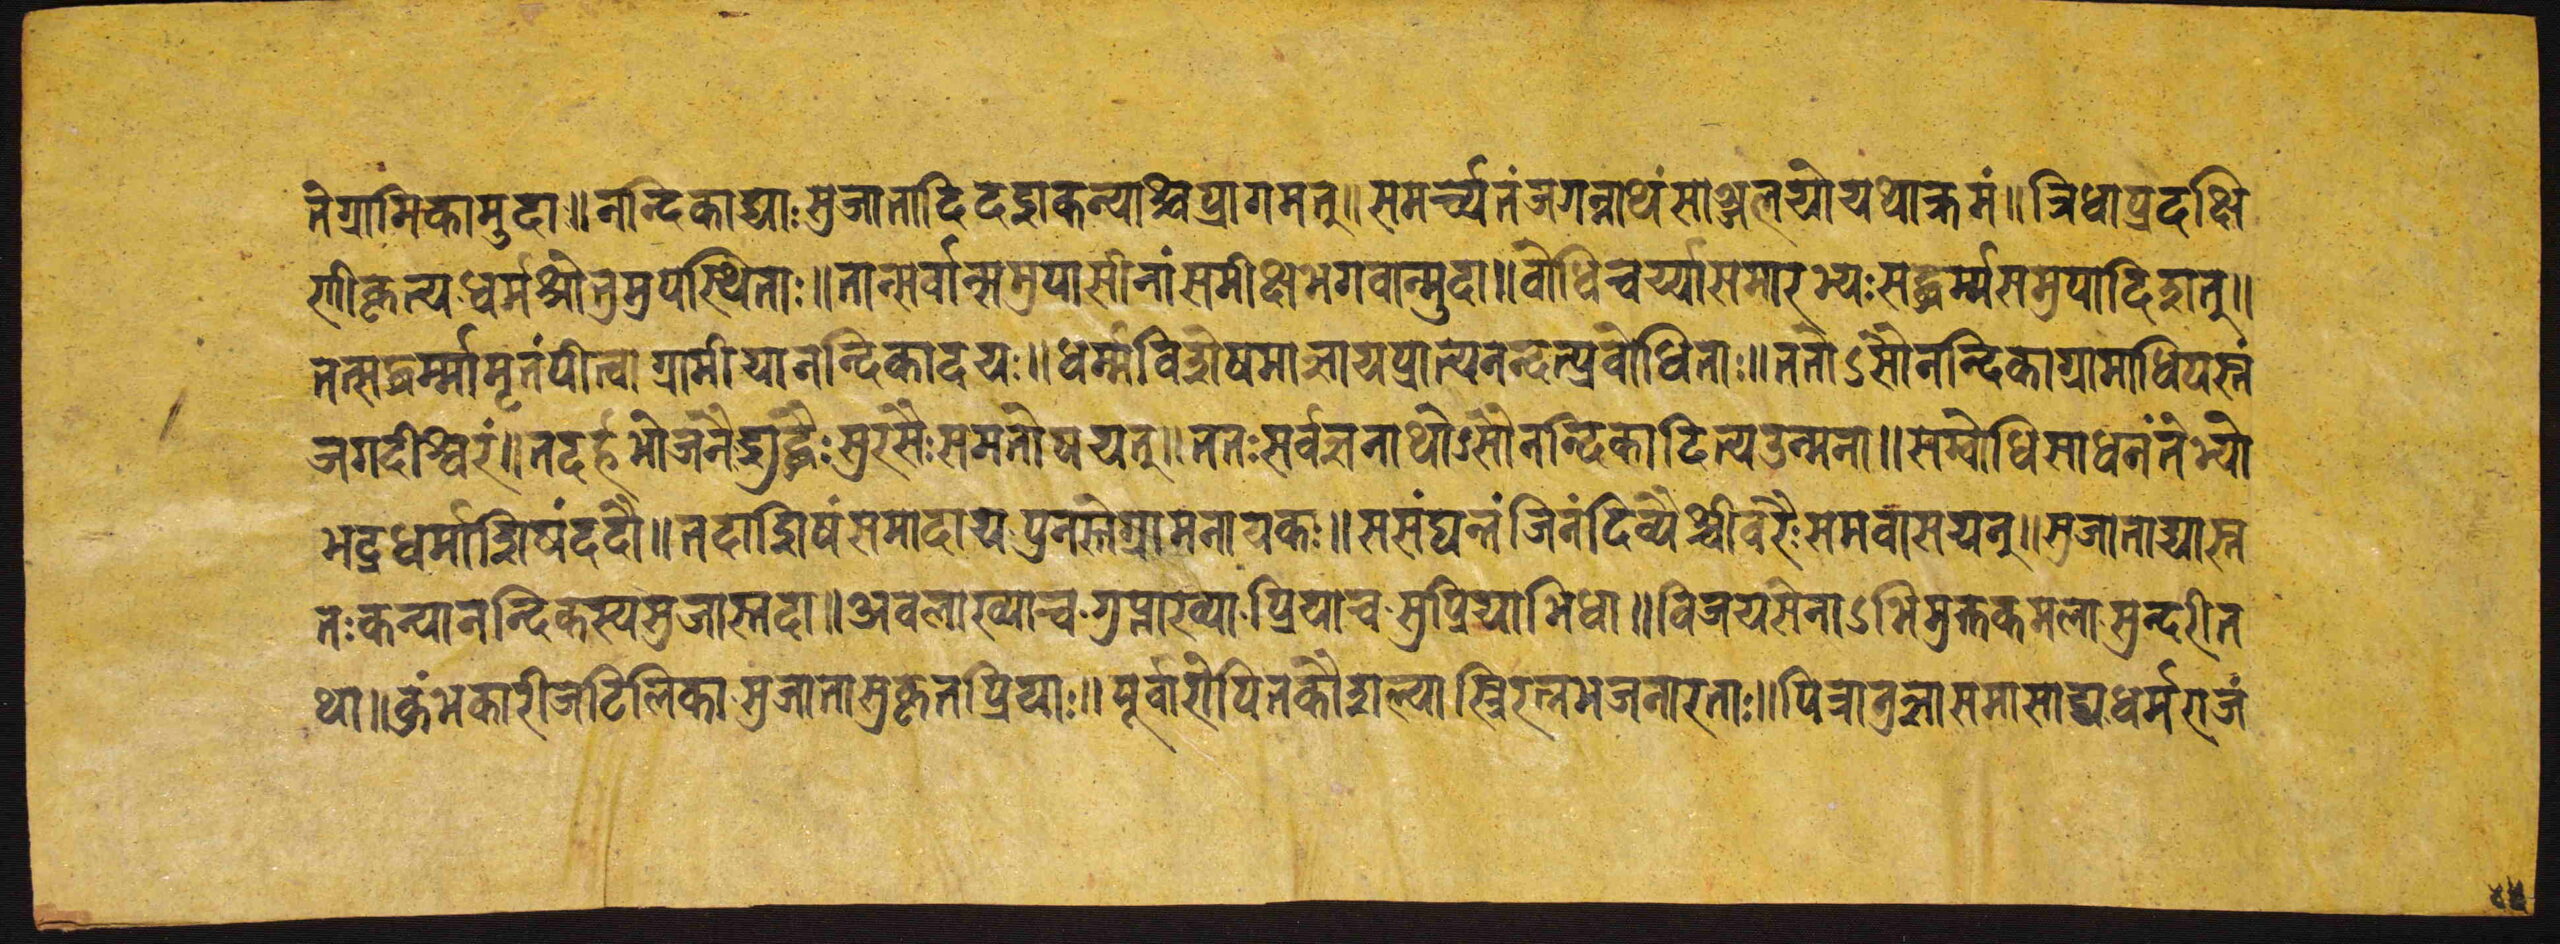 तेग्रामिकामुदा॥नन्दिकाद्याःसुजातादिदशकन्याश्चप्रागमत्॥समर्च्च्यतंजगन्नाथंसाञ्जलयोयथाक्रमं॥त्रिधाप्रदक्षि
णीकृत्यधर्मश्रोतुमुपस्थिताः॥तान्सर्वान्समुपासीनांसमीक्षभगवान्मुदा॥वोधिचर्य्यासमारभ्यःसद्धर्म्मसमुपादिशत्॥
तत्सद्धर्म्मामृतंपीत्वाग्रामीयानन्दिकादयः॥धर्म्मविशेषमाज्ञायप्रात्यनन्दत्प्रवोधिताः॥ततोऽसौनन्दिकाग्रामाधिपस्तं
जगदीश्वरं॥तदर्हभोजनैशुद्धैःसुरसैःसमतोषयत्॥ततःसर्वज्ञनाथोऽसौनन्दिकादित्यउन्मना॥सम्वोधिसाधनंतेभ्यो
भद्रधर्माशिषंददौ॥तदाशिषंसमादायपुनस्तेग्रामनायकः॥ससंघन्तंजिनंदिव्यैश्चीवरैःसमवासयत्॥सुजाताद्यास्त
तःकन्यानन्दिकस्यसुजास्तदा॥अवलाख्याचगुप्ताख्याप्रियाचसुप्रियाभिधा॥विजयसेनाऽभिमुक्तकमलासुन्दरीत
था॥कुंभकारीजटिलिकासुजातासुकृतप्रियाः॥पूर्वारोपितकौशल्यास्त्रिरत्नभजनारताः॥पित्रानुज्ञासमासाद्यधर्मराजं